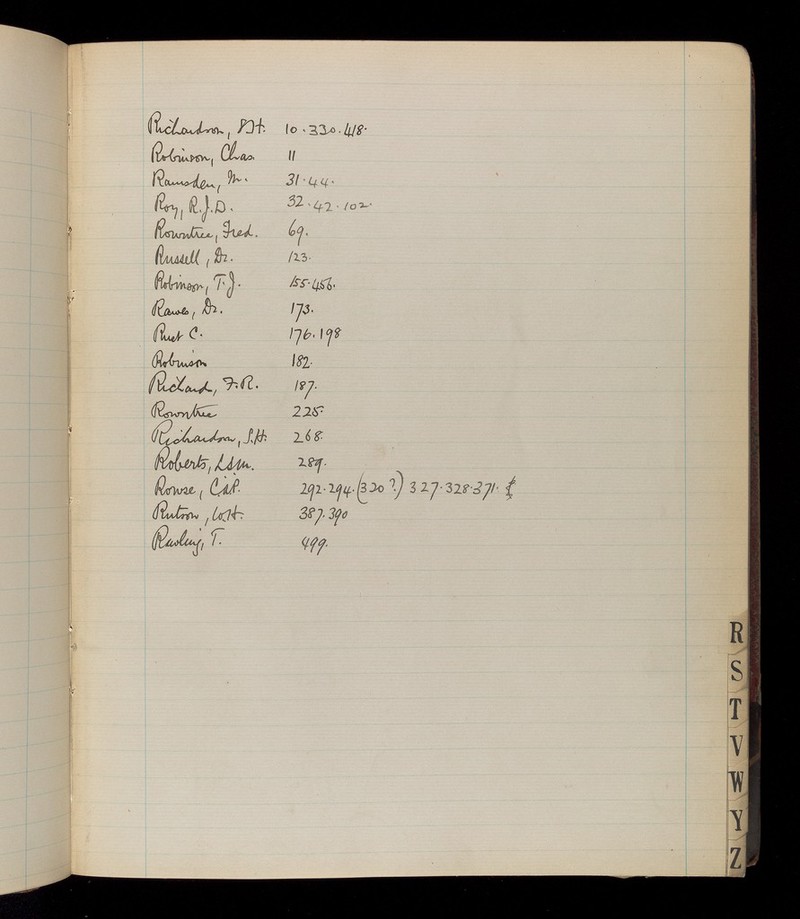 Richardson, S.H. 10.330.418.
Robinson, Chas. 11
Ramsden, M. 31.44.
Roy, R.J.D. 32.42.102.
Rowntree, Fred. 69.
Russell, Dr. 123.
Robinson, T.J. 155.456.
Rawes, Dr. 173.
C. 176.198
Robinson 182.
Richard, F.R. 187.
Rowntree 225.
Richardson, S.H. 268.
Roberts, 289.
Rowse, 292.294.(320?) 327.328.371.
Rutson, W.H. 387.390
Rawling, T. 499.
R
S
T
V
W
Y
Z